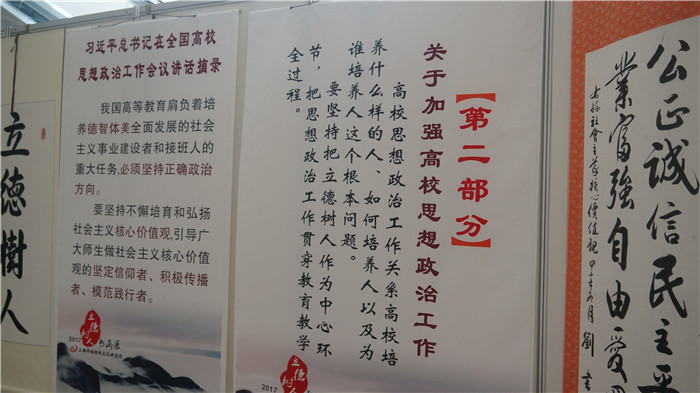 立德樹人
习近平总书记在全国高校
思想政治工作会议讲话摘录
我国高等教育肩负着培
养德智体美全面发展的社会
主义事业建设者和接班人的
重大任务,必须坚持正确政治
方向。
要坚持不懈培育和弘扬
社会主义核心价值观,引导广
大师生做社会主义核心价值
观的坚定信仰者、积极传播
者、模范践行者。
立德树人
书画展
2017
【第二部分】
关于加强高校思想政治工作
高校思想政治工作关系高校培
养什么样的人、如何培养人以及为
谁培养人这个根本问题。
要坚持把立德树人作为中心环
节，把思想政治工作贯穿教育教学
全过程。
立德树人
2017
公正誠信民主平
業富強自由愛
社會主義核心價值觀
劉
書